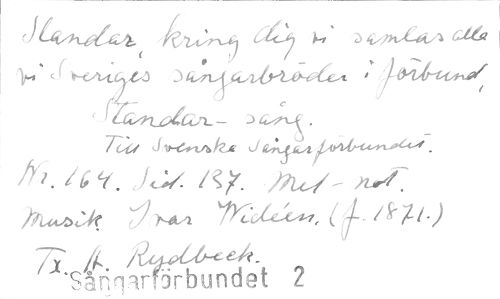 Standar, kring dig vi samlas alla
vi Sveriges sångarbröder i förbund,
Standar-sång.
Till Svenska Sångarförbundet.
Nr. 164. Sid. 137. Mel-not.
Musik Ivar Widéen, (f. 1871.)
Tx. A. Rydbeck.
Sångarförbundet 2